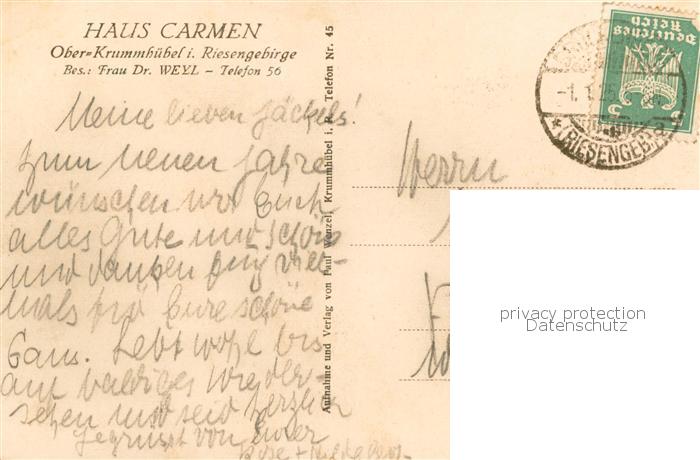 HAUS CARMEN
Ober=Krummhübel i. Riesengebirge
Bes.: Frau Dr. WEYL – Telefon 56
Meine lieben Jäckels!
Zum neuen Jahre
wünschen wir Euch
alles Gute und Schöne
und danken Euch viel-
mals für Eure schöne
Gans. Lebt wohl bis
auf baldiges Wieder-
sehen und seid herzlich
gegrüsst von Eurer
Aufnahme und Verlag von Paul Wenzel, Krummhübel i. R. Telefon Nr. 45
Herrn
Deutsches
Reich
5
-1.1.25
(RIESENGEB.)
privacy protection
Datenschutz